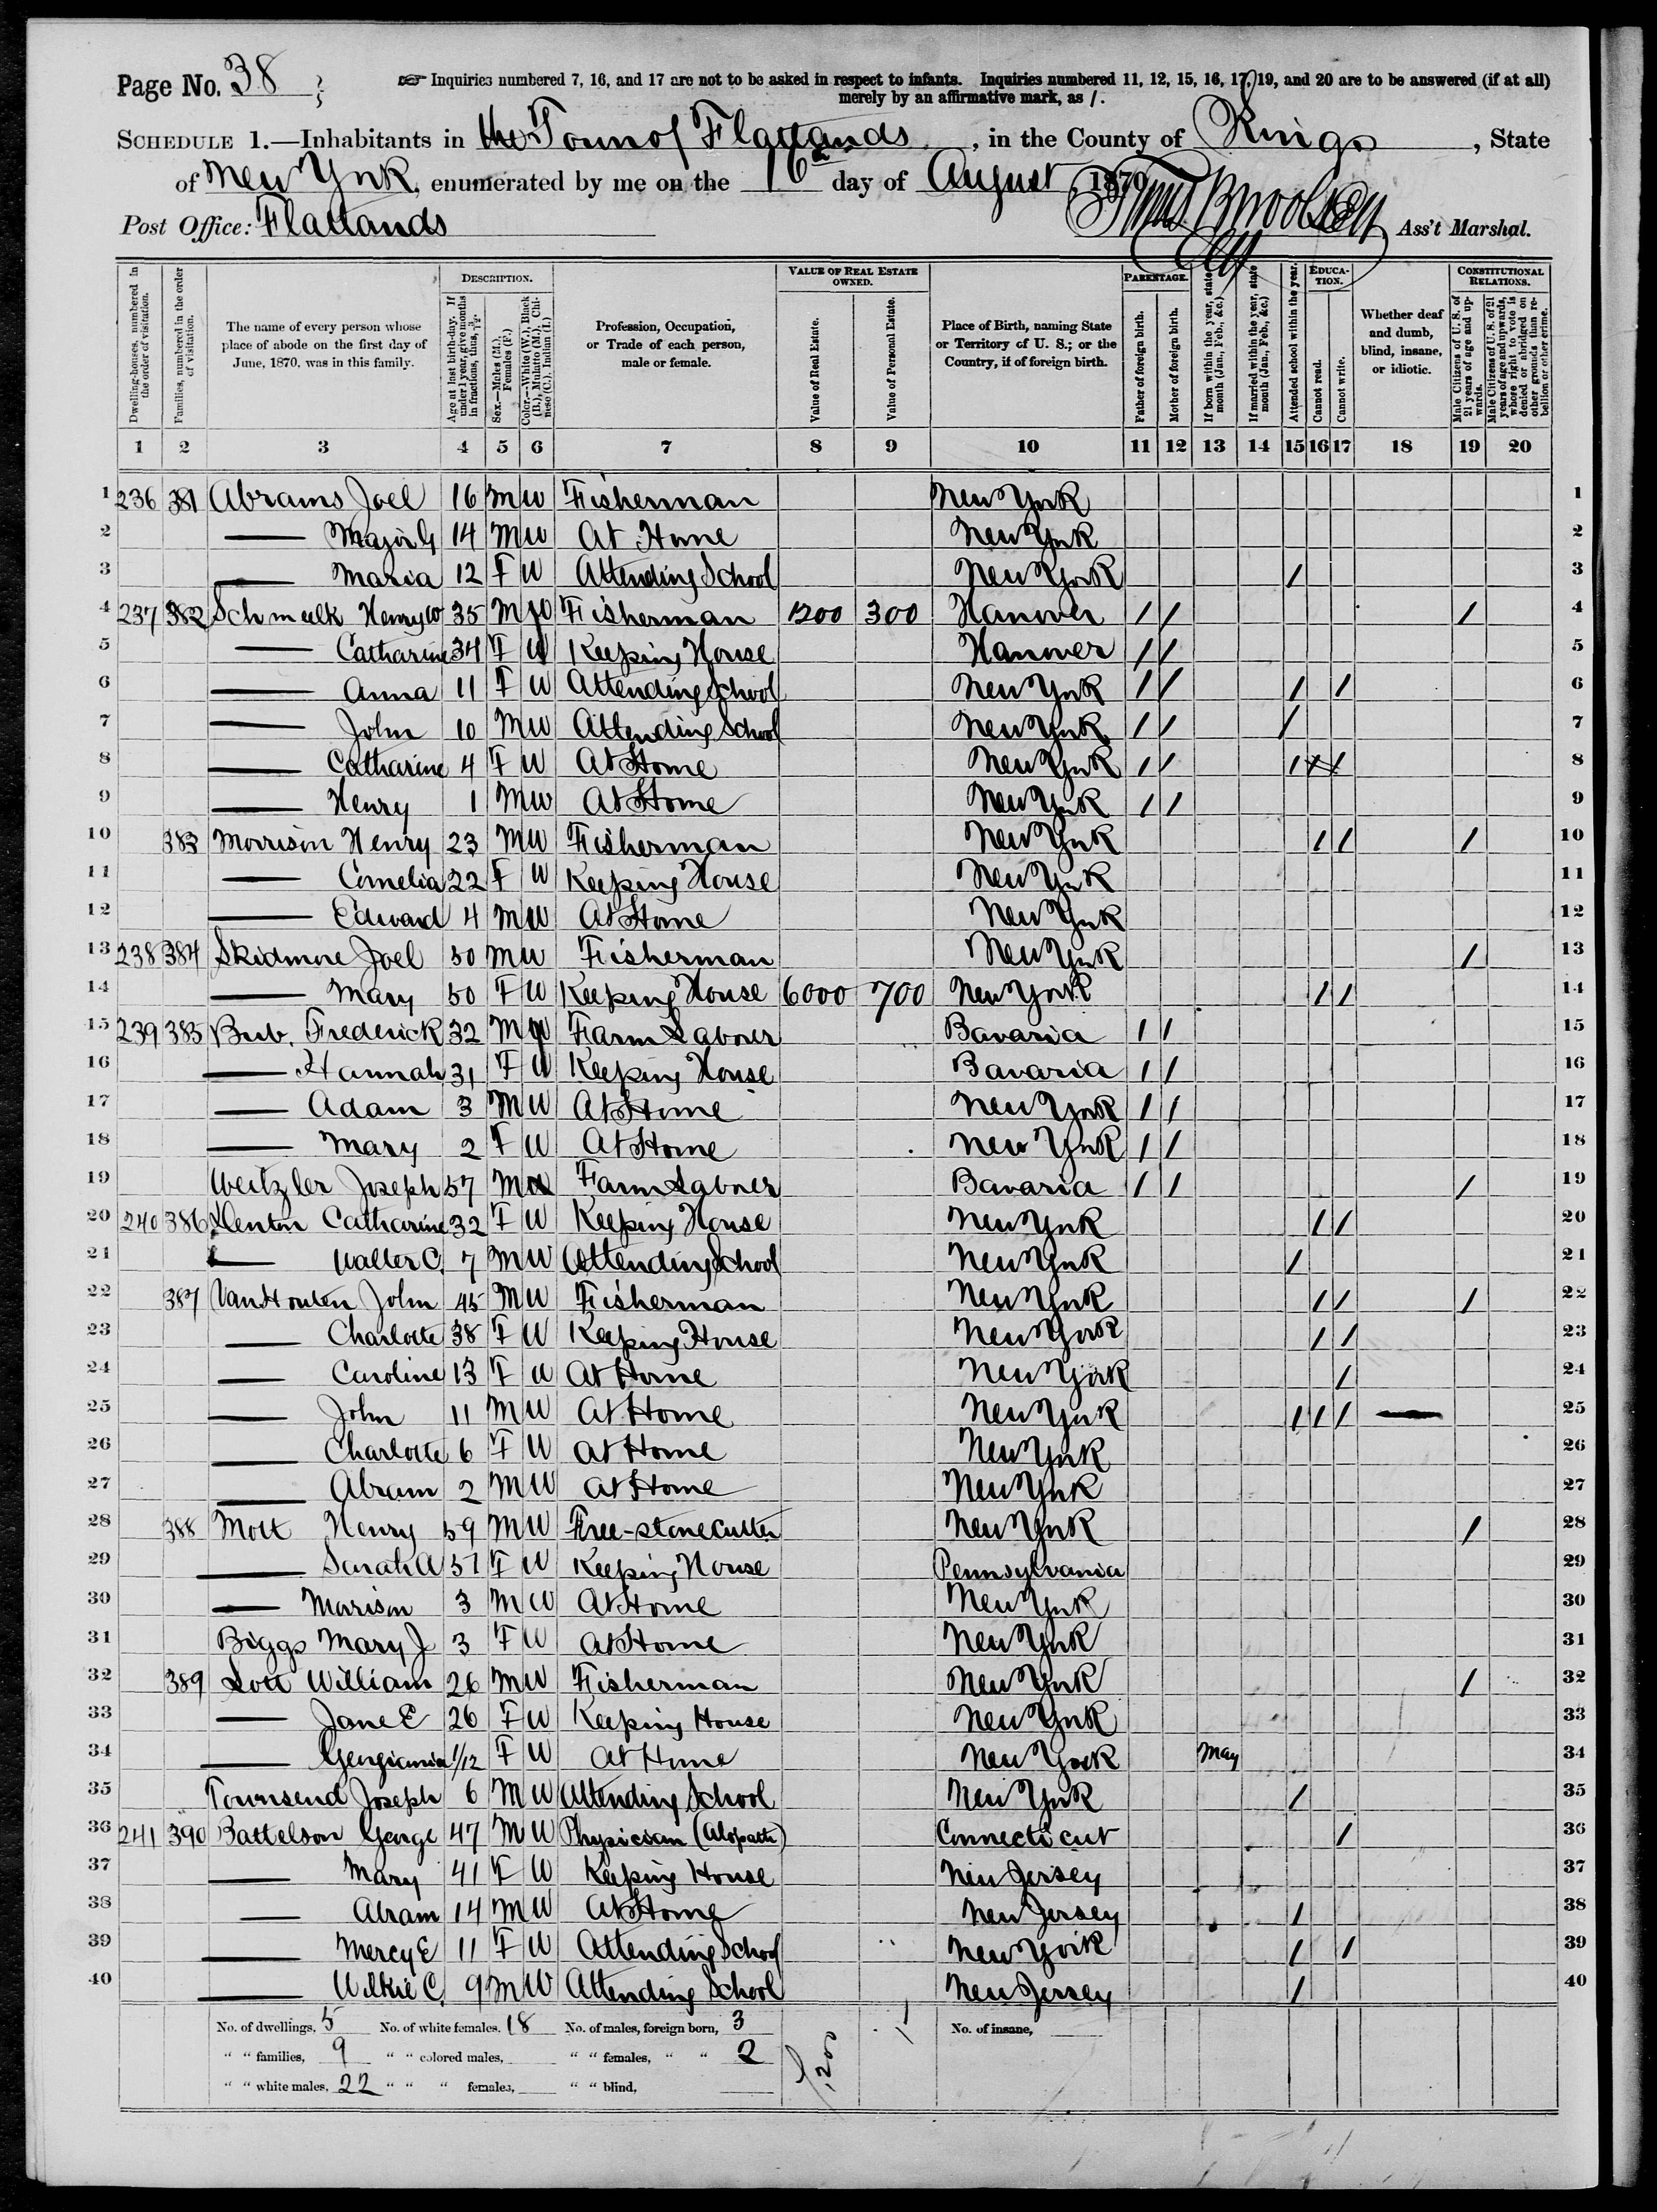 Page No. 38
☞ Inquiries numbered 7, 16, and 17 are not to be asked in respect to infants. Inquiries numbered 11, 12, 15, 16, 17, 19, and 20 are to be answered (if at all)
merely by an affirmative mark, as /.
SCHEDULE 1.—Inhabitants in the Town of Flatlands, in the County of Kings, State
of New York, enumerated by me on the 16 day of August, 1870.
Post Office: Flatlands Ass't Marshal.
Dwelling-houses, numbered in the order of visitation.
Families, numbered in the order of visitation.
The name of every person whose place of abode on the first day of June, 1870, was in this family.
DESCRIPTION.
Age at last birth-day. If under 1 year, give months in fractions, thus, 3/12.
Sex.—Males (M.), Females (F.)
Color.—White (W.), Black (B.), Mulatto (M.), Chinese (C.), Indian (I.)
Profession, Occupation, or Trade of each person, male or female.
VALUE OF REAL ESTATE OWNED.
Value of Real Estate.
Value of Personal Estate.
Place of Birth, naming State or Territory of U. S.; or the Country, if of foreign birth.
PARENTAGE.
Father of foreign birth.
Mother of foreign birth.
If born within the year, state month (Jan., Feb., &c.)
If married within the year, state month (Jan., Feb., &c.)
EDUCATION.
Attended school within the year.
Cannot read.
Cannot write.
Whether deaf and dumb, blind, insane, or idiotic.
CONSTITUTIONAL RELATIONS.
Male Citizens of U. S. of 21 years of age and upwards.
Male Citizens of U. S. of 21 years of age and upwards, whose right to vote is denied or abridged on other grounds than rebellion or other crime.
1 2 3 4 5 6 7 8 9 10 11 12 13 14 15 16 17 18 19 20
1 236 381 Abrams Joel 16 M W Fisherman New York 1
2 —— Major G 14 M W At Home New York 2
3 —— Maria 12 F W Attending School New York / 3
4 237 382 Henry W 35 M W Fisherman 1200 300 Hanover / / / 4
5 —— Catharine 34 F W Keeping House Hanover / / 5
6 —— Anna 11 F W Attending School New York / / / / 6
7 —— John 10 M W Attending School New York / / / 7
8 —— Catharine 4 F W At Home New York / / 8
9 —— Henry 1 M W At Home New York / / 9
10 383 Morrison Henry 23 M W Fisherman New York / / / 10
11 —— Cornelia 22 F W Keeping House New York 11
12 —— Edward 4 M W At Home New York 12
13 238 384 Skidmore Joel 50 M W Fisherman New York / 13
14 —— Mary 50 F W Keeping House 6000 700 New York / / 14
15 239 385 Frederick 32 M W Farm Laborer Bavaria / / 15
16 —— Hannah 31 F W Keeping House Bavaria / / 16
17 —— Adam 3 M W At Home New York / / 17
18 —— Mary 2 F W At Home New York / / 18
19 Weitzler Joseph 57 M W Farm Laborer Bavaria / / / 19
20 240 386 Denton Catharine 32 F W Keeping House New York / / 20
21 —— Walter C. 7 M W Attending School New York / 21
22 387 Van Houten John 45 M W Fisherman New York / / / 22
23 —— Charlotte 38 F W Keeping House New York / / 23
24 —— Caroline 13 F W At Home New York / 24
25 —— John 11 M W At Home New York / / / —— 25
26 —— Charlotte 6 F W At Home New York 26
27 —— Abram 2 M W At Home New York 27
28 388 Mott Henry 59 M W Free-stone cutter New York / 28
29 —— Sarah A 57 F W Keeping House Pennsylvania 29
30 —— Morison 3 M W At Home New York 30
31 Biggs Mary J 3 F W At Home New York 31
32 389 Lott William 26 M W Fisherman New York / 32
33 —— Jane E 26 F W Keeping House New York 33
34 —— 1/12 F W At Home New York May 34
35 Townsend Joseph 6 M W Attending School New York / 35
36 241 390 Battelson George 47 M W Physician (Alopath) Connecticut / 36
37 —— Mary 41 F W Keeping House New Jersey 37
38 —— Abram 14 M W At Home New Jersey / 38
39 —— Mercy E 11 F W Attending School New York / / 39
40 —— Wilkie C. 9 M W Attending School New Jersey / 40
No. of dwellings, 5 No. of white females, 18 No. of males, foreign born, 3 No. of insane,
" " families, 9 " " colored males, " " females, " " 2
" " white males, 22 " " " females, " " blind,
1200